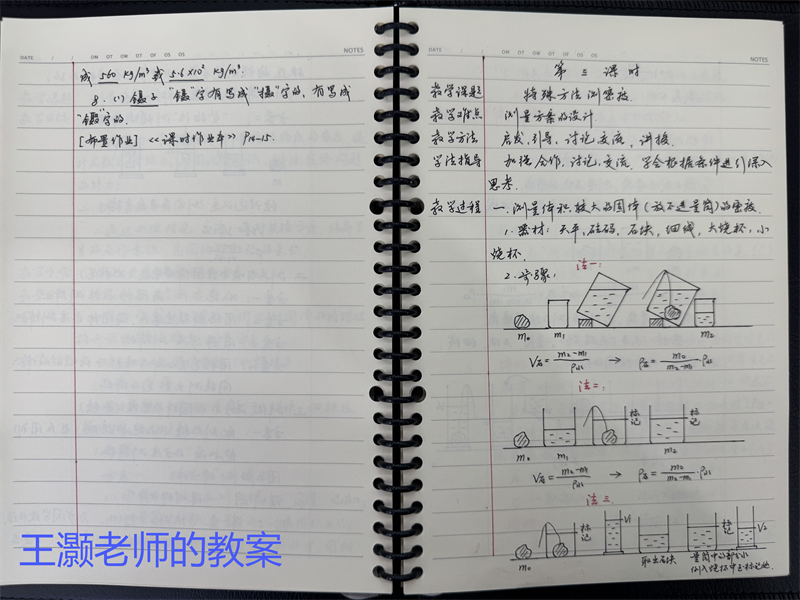 DATE / /
NOTES
或560 kg/m³或5.6×10² kg/m³.
8.(1)镊子 "镊"字有写成"摄"字的,有写成
字的.
[布置作业]《课时作业本》P14-15.
DATE / /
NOTES
第三课时
教学课题 特殊方法测密度.
教学难点 测量方案的设计.
教学方法 启发,引导,讨论,交流,讲授.
学法指导 加强合作,讨论,交流.学会根据条件进行深入
思考.
教学过程 一.测量体积较大的固体(放不进量筒)的密度.
1.器材:天平,砝码,石块,细线,大烧杯,小
烧杯.
2.步骤:
法一:
m₀ m₁ m₂
V石=(m₂-m₁)/ρ水 → ρ石=m₀/(m₂-m₁)·ρ水
法二:
标记 标记
m₀ m₁ m₂
V石=(m₂-m₁)/ρ水 → ρ石=m₀/(m₂-m₁)·ρ水
法三.
标记 V₁ 标记 V₂
m₀ 取出石块 量筒中的部分水
倒入烧杯中至标记处.
王灏老师的教案